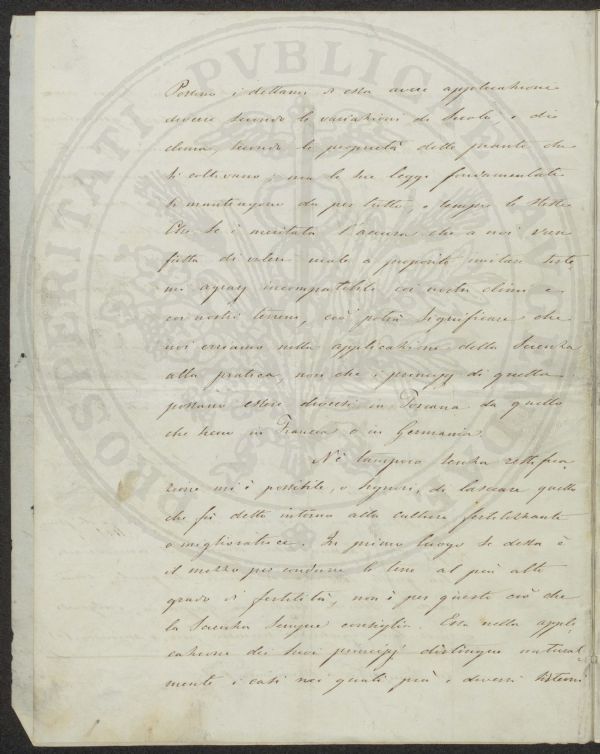 PROSPERITATI PUBLICAE
Possono i dettami di essa avere applicazione
diverse secondo le variazioni di Secolo, e di
clima, secondo le proprietà delle piante che
si coltivano; ma le sue leggi fondamentali
si mantengono da per tutto, e sempre le stesse
Che se è meritata l'accusa che a noi vien
fatta di volere male a proposito imitare siste,
mi agrarj incompatibili coi nostri climi e
coi nostri terreni, ciò potrà significare che
noi erriamo nella applicazione della Scienza
alla pratica, non che i principj di quella
possano essere diversi in Toscana da quello
che sieno in Francia o in Germania.
Nè tampoco senza rettifica,
zione mi è possibile, o Signori, di lasciare quello
che fù detto intorno alla cultura fertilizzante
o miglioratrice. In primo luogo se dessa è
il mezzo per condurre le terre al più alto
grado di fertilità, non è per questo ciò che
la Scienza sempre consiglia. Essa nella appli,
cazione dei suoi principj distingue natural,
mente i casi nei quali più e diversi sistemi